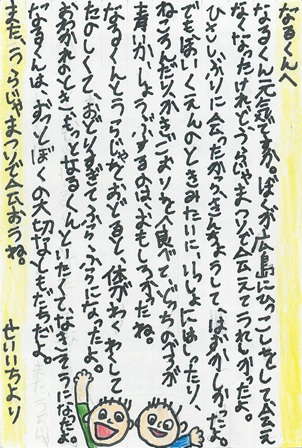 なるくんへ
なるくん元気ですか。ぼくが広島にひっこしをして、会え
なくなったけれど、うらじゃまつりで会えてうれしかったよ。
ひさしぶりに会ったからきんちょうして、はずかしかったよ。
でもほいくえんのときみたいに、いっしょにはしったり、
ねころんだり、かきごおりを食べて、どっちのべろが
青いか、しょうぶするのは、おもしろかったね。
なるくんとうらじゃをおどると、体がわくわくして
たのしくて、おどりすぎてふらふらになったよ。
おわかれのとき、もっとなるくんといたくてなきそうになったよ。
なるくんは、ずっとぼくの大切なともだちだよ。
また、うらじゃまつりで会おうね。
せいいちより